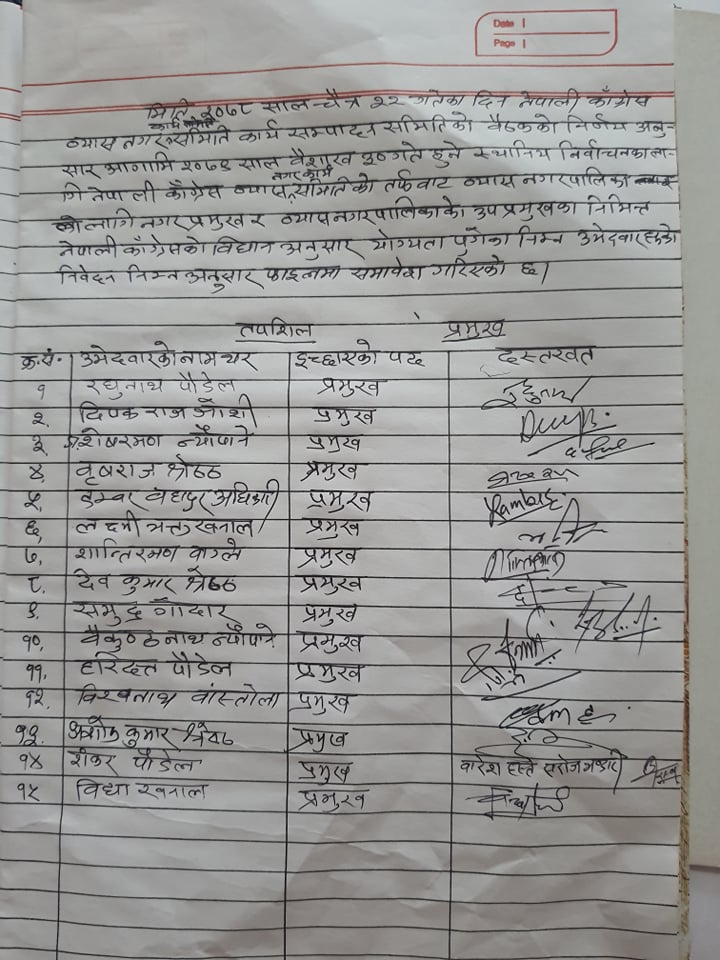 Date |
Page |
मिति २०७८ साल चैत्र २२ गतेका दिन नेपाली काँग्रेस
कार्य
व्यास नगर समिति कार्य सम्पादन समितिको बैठकको निर्णय अनु-
सार आगामि २०७९ साल वैशाख ३० गते हुने स्थानिय निर्वाचनका ला-
नगर कार्य
गि नेपाली काँग्रेस व्यास समितिको तर्फबाट व्यास नगरपालिका
को लागि नगर प्रमुख र व्यास नगरपालिकाको उपप्रमुखका निमित्त
नेपाली काँग्रेसको विधान अनुसार योग्यता पुगेका निम्न उमेदवारहरुको
निवेदन निम्न अनुसार फाइलमा समावेश गरिएको छ।
तपशिल प्रमुख
क्र.सं. उमेदवारको नाम थर इच्छाएको पद दस्तखत
१ रघुनाथ पौडेल प्रमुख
२. दिपक राज जोशी प्रमुख
३. शेषरमण न्यौपाने प्रमुख
४. वृषराज श्रेष्ठ प्रमुख
५. डम्बर बहादुर अधिकारी प्रमुख
६. लक्ष्मी भक्त खनाल प्रमुख
७. शान्तिरमण वाग्ले प्रमुख
८. देव कुमार श्रेष्ठ प्रमुख
९. समुद्र प्रमुख
१०. बैकुण्ठनाथ न्यौपाने प्रमुख
११. हरिदत्त पौडेल प्रमुख
१२. विश्वनाथ वांस्तोला प्रमुख
१३. अशोक कुमार श्रेष्ठ प्रमुख
१४ शंकर पौडेल प्रमुख वारेश हस्ते सरोज भण्डारी
१५ विद्या खनाल प्रमुख